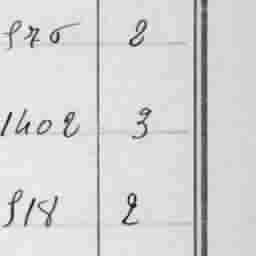 975 2
1402 3
918 2